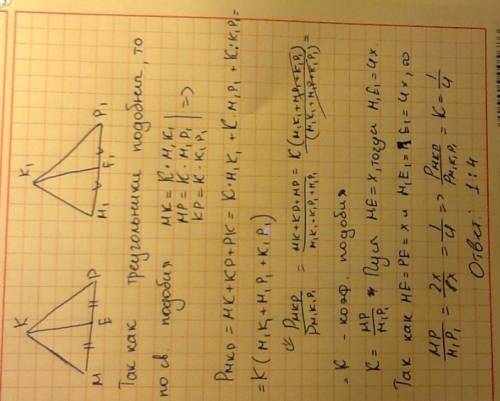 K
M E P
K₁
M₁ E₁ P₁
Так как треугольники подобны, то
по св. подобия
MK = K · M₁K₁
MP = K · M₁P₁
KP = K · K₁P₁
=>
P MKP = MK + KP + PK = K · M₁K₁ + K · M₁P₁ + K · K₁P₁ =
= K (M₁K₁ + M₁P₁ + K₁P₁)
P MKP / P M₁K₁P₁ = MK + KP + MP / M₁K₁ + K₁P₁ + M₁P₁ = K (M₁K₁ + M₁P₁ + K₁P₁) / (M₁K₁ + M₁P₁ + K₁P₁) =
= K - коэф. подобия
K = MP / M₁P₁ Пусть ME = x, тогда M₁E₁ = 4x
Так как ME = PE = x и M₁E₁ = P₁E₁ = 4x, то
MP / M₁P₁ = 2x / 8x = 1 / 4 => P MKP / P M₁K₁P₁ = K = 1 / 4
Ответ: 1 : 4